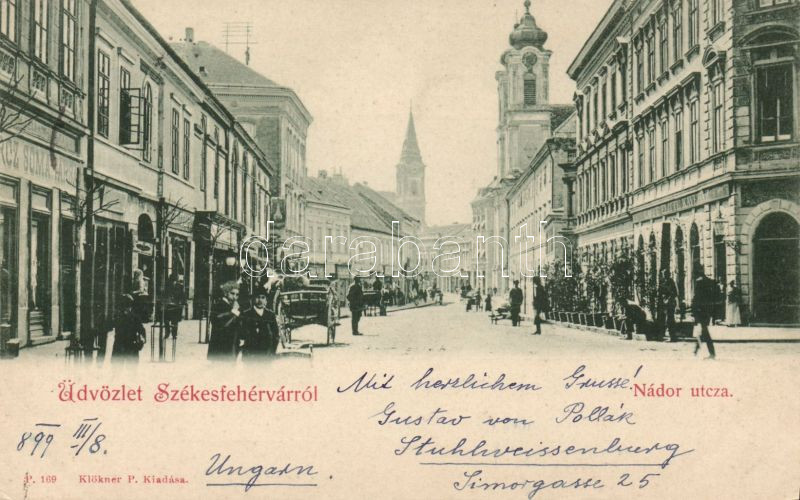 darabanth
Üdvözlet Székesfehérvárról
Nádor utcza.
Mit herzlichem Grussé
Gustav von Pollák
Stuhlweissenburg
Simorgasse 25
899 III/8.
Ungarn.
P. 169 Klökner P. Kiadása.